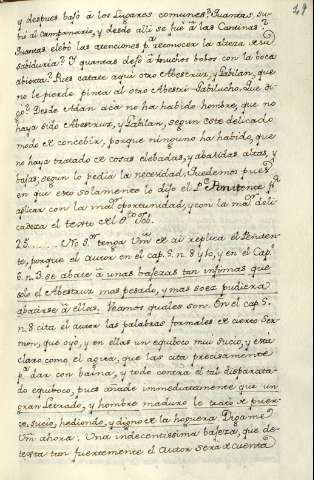 29
y despues bajò à los Lugares comunes? Quantas, su-
biò al campanario, y desde alli se fuè à las Cantinas?
Quantas elebò las atenciones p.ª reconocer la alteza de su
sabiduria? Y quantas dejò à muchos bobos con la boca
abierta? Pues catate aqui otro Abestruz, y Gabilan, que
no le pierde pinta al otro Abestri-Gabilucho. Que di-
go? Desde Adan acà no ha habido hombre, que no
haya sido Abestruz, y Gabilan, segun este delicado
modo de concebir, porque ninguno ha habido, que
no haya tratado de cosas elebadas, y abatidas altas, y
bajas, segun lo pedia la necesidad. Quedemos pues
en que esto solamente lo dijo el Penitente p.ª
aplicar con la may.r oportunidad, y con la may.r deli-
cadeza el texto del S.to Job.
25....... No S.or tenga Vm. que ai replica el Peniten-
te, porque el Autor en el cap. 5. n. 8 y 10, y en el Cap.
6. n. 3. se abate à unas bajezas tan infimas que
solo el Abestruz mas pesado, y mas soez pudiera
abatirse à ellas. Veamos quales son. En el cap. 5.
n. 8 cita el autor las palabras formales de cierto Ser-
mon, que oyò, y en ellas un equiboco muy sucio, y esta
claro como el agua, que las cita precisamente
p.ª dar con baina, y todo contra el tal disparata-
do equiboco, pues añade immediatamente que un
gran Letrado, y hombre maduro le tratò de puer-
co, sucio, hediondo, y digno de la hoguera. Digame
Vm. ahora. Una indecentissima bajeza, que de-
testa tan fuertemente el Autor serà de cuenta